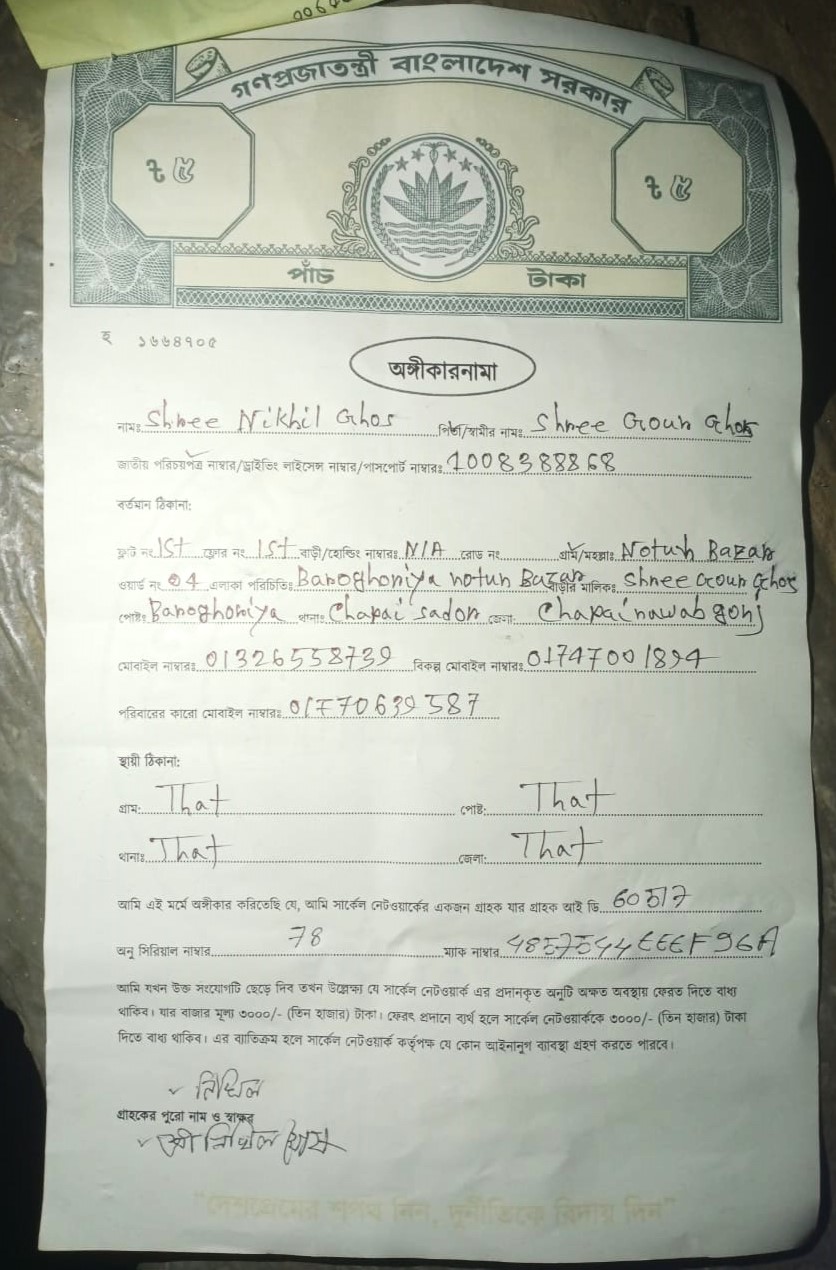 ০০৬
গণপ্রজাতন্ত্রী বাংলাদেশ সরকার
৳ ৫ ৳ ৫
পাঁচ টাকা
হ ১৬৬৪৭০৫
অঙ্গীকারনামা
নামঃ Shree Nikhil Ghos পিতা/স্বামীর নামঃ Shree Gour Ghos
জাতীয় পরিচয়পত্র নাম্বার/ড্রাইভিং লাইসেন্স নাম্বার/পাসপোর্ট নাম্বারঃ 1008388868
বর্তমান ঠিকানা:
ফ্লাট নং 1St ফ্লোর নং 1St বাড়ী/হোল্ডিং নাম্বারঃ N/A রোড নং গ্রাম/মহল্লাঃ Notun Bazar
ওয়ার্ড নং 04 এলাকা পরিচিতিঃ Baroghoriya notun Bazar বাড়ীর মালিকঃ Shree Gour Ghos
পোষ্টঃ Baroghoriya থানাঃ Chapai sador জেলা: Chapainawabgonj
মোবাইল নাম্বারঃ 01326558739 বিকল্প মোবাইল নাম্বারঃ 01747001894
পরিবারের কারো মোবাইল নাম্বারঃ 01770639587
স্থায়ী ঠিকানা:
গ্রাম: That পোষ্ট: That
থানাঃ That জেলা: That
আমি এই মর্মে অঙ্গীকার করিতেছি যে, আমি সার্কেল নেটওয়ার্কের একজন গ্রাহক যার গ্রাহক আই ডি 60517
অনু সিরিয়াল নাম্বার 78 ম্যাক নাম্বার 4857544EEEF96A
আমি যখন উক্ত সংযোগটি ছেড়ে দিব তখন উল্লেক্ষ্য যে সার্কেল নেটওয়ার্ক এর প্রদানকৃত অনুটি অক্ষত অবস্থায় ফেরত দিতে বাধ্য
থাকিব। যার বাজার মূল্য ৩০০০/- (তিন হাজার) টাকা। ফেরৎ প্রদানে ব্যর্থ হলে সার্কেল নেটওয়ার্ককে ৩০০০/- (তিন হাজার) টাকা
দিতে বাধ্য থাকিব। এর ব্যতিক্রম হলে সার্কেল নেটওয়ার্ক কর্তৃপক্ষ যে কোন আইনানুগ ব্যাবস্থা গ্রহণ করতে পারবে।
নিখিল
গ্রাহকের পুরো নাম ও স্বাক্ষর
শ্রী নিখিল ঘোষ
"দেশপ্রেমের শপথ নিন, দুর্নীতিকে বিদায় দিন"